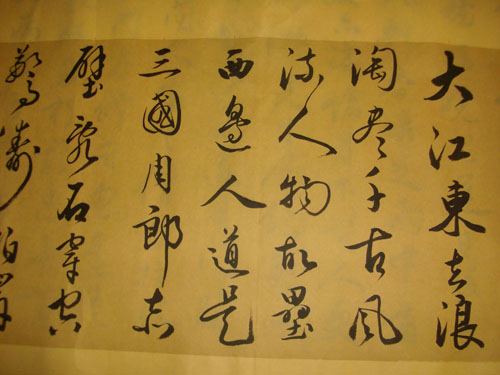 大江東去浪
淘尽千古風
流人物故壘
西邊人道是
三國周郎赤
壁亂石穿空
驚濤拍岸